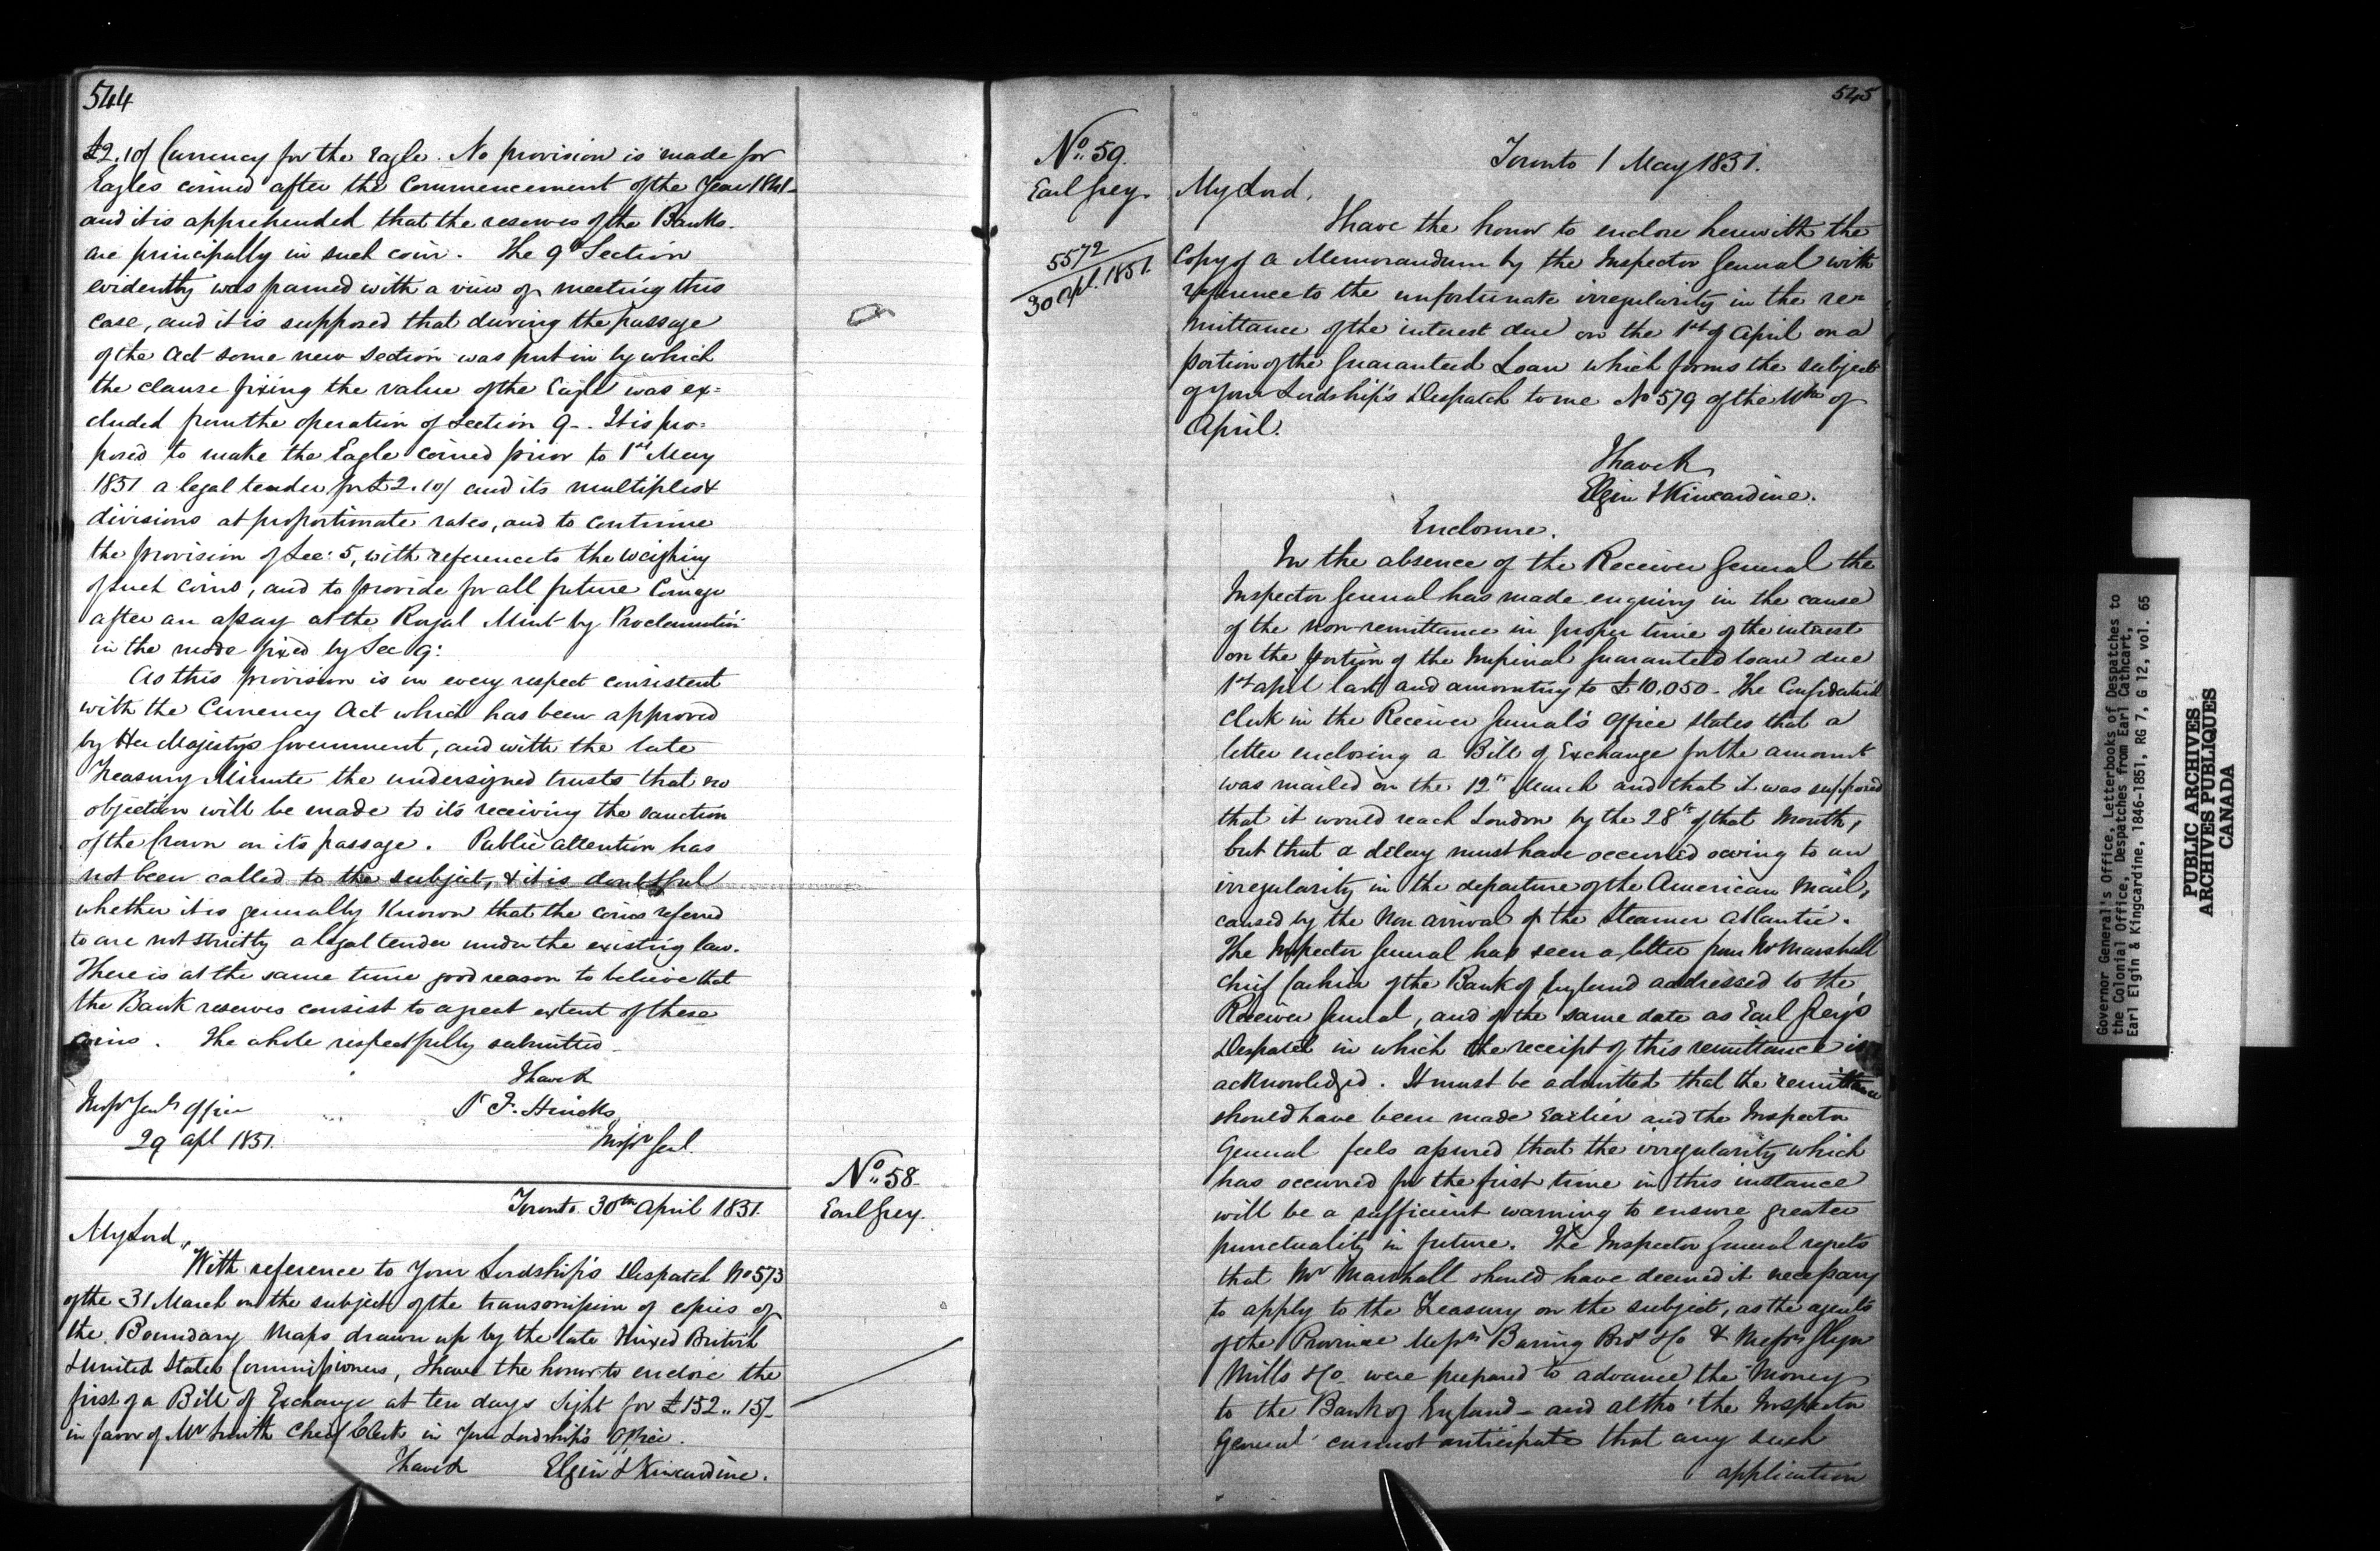 544
£2.10/ Currency for the Eagle. No provision is made for
Eagles coined after the Commencement of the Year 1841
and it is apprehended that the reserves of the Banks
are principally in such coin. The 9th Section
evidently was framed with a view of meeting this
case, and it is supposed that during the passage
of the Act some new section was put in by which
the clause fixing the value of the Eagle was ex=
cluded from the operation of Section 9. It is pro=
posed to make the Eagle coined prior to 1st May
1851 a legal tender for £2.10/ and its multiples &
divisions at proportionate rates, and to continue
the provision of Sec: 5, with reference to the weighing
of such Coins, and to provide for all future Coinage
after an assay at the Royal Mint by Proclamation
in the mode fixed by Sec 9:
As this provision is in every respect consistent
with the Currency Act which has been approved
by Her Majesty's Government, and with the late
Treasury Minute the undersigned trusts that no
objection will be made to it's receiving the sanction
of the Crown on its passage. Public attention has
not been called to the subject, & it is doubtful
whether it is generally known that the coins referred
to are not strictly a legal tender under the existing law.
There is at the same time good reason to believe that
the Bank reserves consist to a great extent of these
coins. The whole respectfully submitted
I have &
Inspr Genls Office
F. Hincks
29 Apl 1851.
Inspr Genl.
No. 58
Earl Grey.
Toronto 30th April 1851.
My Lord,
With reference to Your Lordship's Despatch No 573
of the 31 March on the subject of the transmission of copies of
the Boundary Maps drawn up by the late Mixed British
& United States Commissioners, I have the honor to enclose the
first of a Bill of Exchange at ten days sight for £152.. 15/-
in favor of Mr Smith Chief Clerk in Your Lordship's Office.
I have & Elgin & Kincardine.
545
No. 59.
Earl Grey.
5572
30 Apl. 1851.
Toronto 1 May 1851.
My Lord,
I have the honor to enclose herewith the
Copy of a Memorandum by the Inspector General with
reference to the unfortunate irregularity in the re=
mittance of the interest due on the 1st of April on a
portion of the Guaranteed Loan which forms the subject
of Your Lordship's Despatch to me No 579 of the 11th of
April.
I have &
Elgin & Kincardine.
Enclosure.
In the absence of the Receiver General the
Inspector General has made enquiry in the cause
of the non-remittance in proper time of the interest
on the portion of the Imperial Guaranteed loan due
1st April last and amounting to £10,050. The Confidential
Clerk in the Receiver General's Office states that a
letter enclosing a Bill of Exchange for the amount
was mailed on the 12th March and that it was supposed
that it would reach London by the 28th of that Month,
but that a delay must have occurred owing to an
irregularity in the departure of the American Mail,
caused by the Non arrival of the Steamer Atlantic.
The Inspector General has seen a letter from Mr Marshall
Chief Cashier of the Bank of England addressed to the
Receiver General, and of the same date as Earl Grey's
Despatch in which the receipt of this remittance is
acknowledged. It must be admitted that the remittance
should have been made earlier and the Inspector
General feels assured that the irregularity which
has occurred for the first time in this instance
will be a sufficient warning to ensure greater
punctuality in future. The Inspector General regrets
that Mr Marshall should have deemed it necessary
to apply to the Treasury on the subject, as the agents
of the Province Messrs Baring Bros & Co & Messrs Glyn
Mills & Co were prepared to advance the Money
to the Bank of England - and altho' the Inspector
General cannot anticipate that any such
application
Governor General's Office, Letterbooks of Despatches to
the Colonial Office, Despatches from Earl Cathcart,
Earl Elgin & Kingcardine, 1846-1851, RG 7, G 12, vol. 65
PUBLIC ARCHIVES
ARCHIVES PUBLIQUES
CANADA